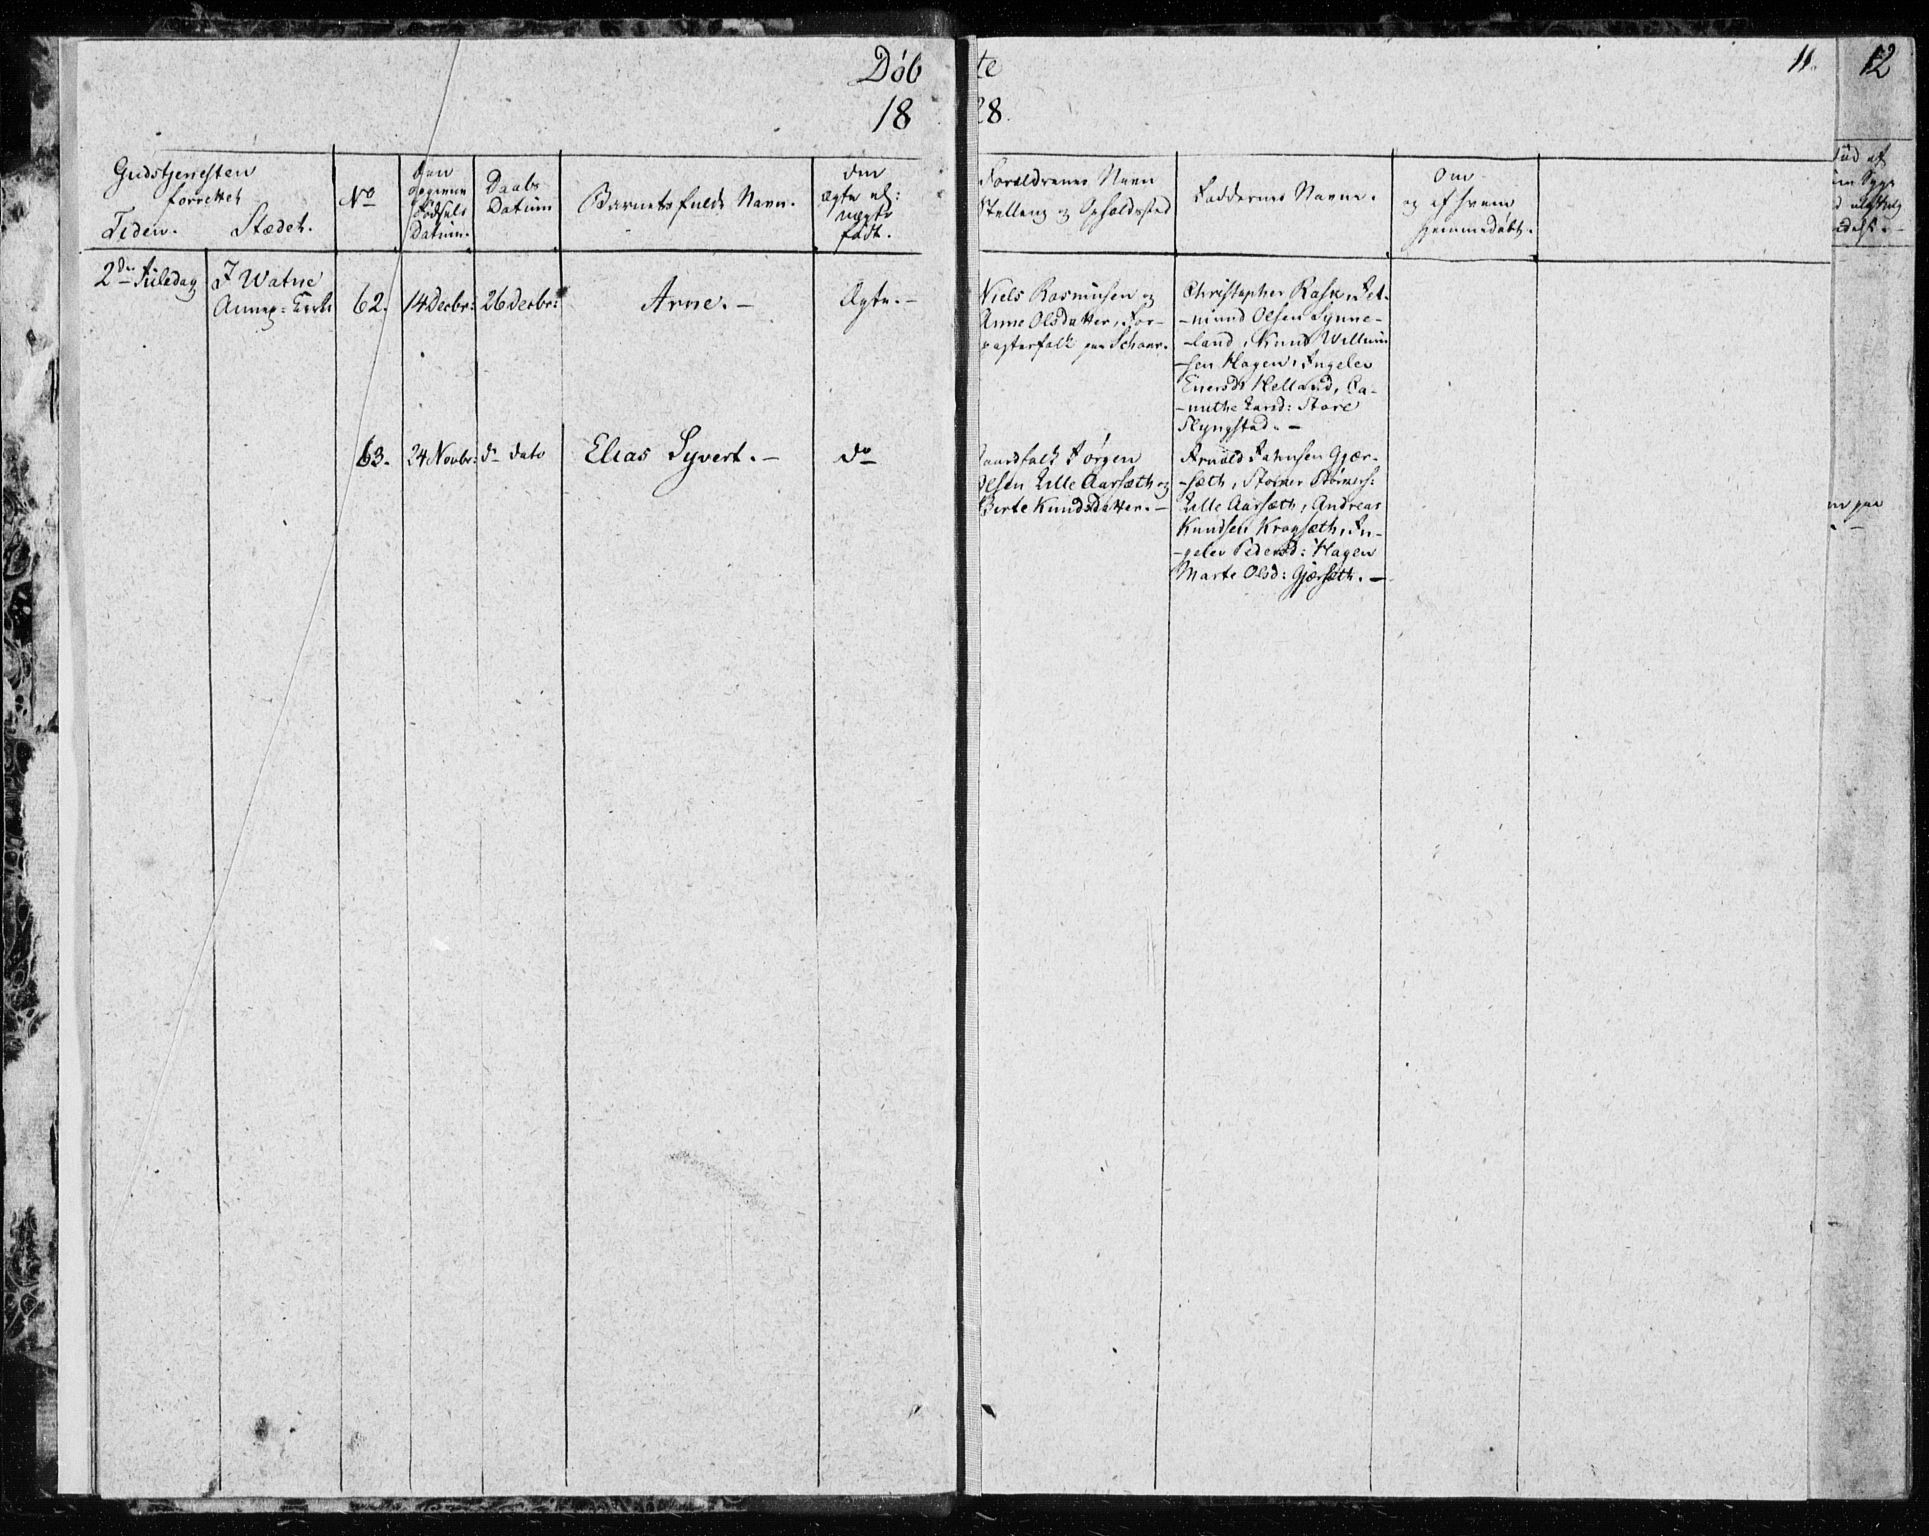 Døb
te
11.
12
18
28.
Gudstjenesten
forrettet
Tiden. Stædet.
No
Den
opgivne
Fødsels
Datum.
Daabs
Datum
Barnets fulde Navn.
Om
Ægte el:
uægte
født.
Forældrenes Navn
Stelling og Opholdssted
Faddernes Navne.
Om
og af hvem
hjemmedøbt.
2den Juledag
I Watne
Annex: Kirke
62.
14 Decbr:
26 Decbr:
Arne. —
Ægte. —
Niels Rasmusen og
Anne Olsdatter, For-
pagterfolk paa
Christopher Rask,
-mund Olsen Synne-
-land, Knut Willum
-sen Hagen, Ingelev
Helland, Ca-
-nuthe Store
Slyngstad. —
63.
24 Novbr:
do dato
Elias Syvert. —
do
Gaardfolk Jørgen
Olsen Lille Aarsæth og
Berte KnudsDatter. —
Arnold Jahnsen Gjær-
-sæth,
Lille Aarsæth, Andreas
Knudsen Krogsæth, In-
-gelev Pedersd: Hagen
Marte Olsd: Gjærsæth. —
paa